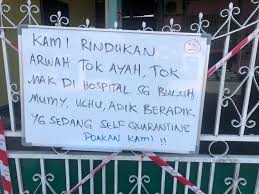 KAMI RINDUKAN
ARWAH TOK AYAH, TOK
MAK DI HOSPITAL SG BULUH
MUMY, UCHU, ADIK BERADIK
YG SEDANG SELF QUARANTINE
DOAKAN KAMI !!